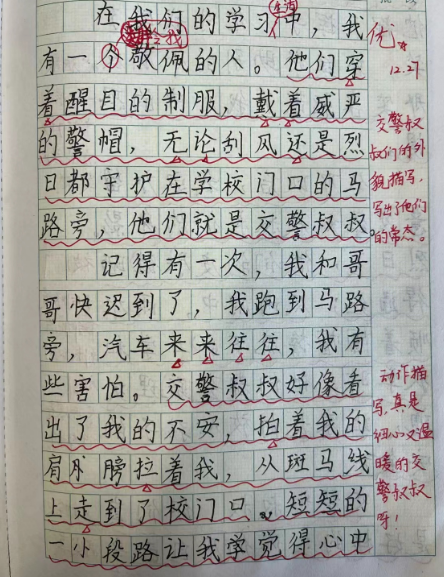 在我们的学习中，我
有一个敬佩的人。他们穿
着醒目的制服，戴着威严
的警帽，无论刮风还是烈
日都守护在学校门口的马
路旁，他们就是交警叔叔。
记得有一次，我和哥
哥快迟到了，我跑到马路
旁，汽车来来往往，我有
些害怕。交警叔叔好像看
出了我的不安，拍着我的
肩膀拉着我，从斑马线
上走到了校门口。短短的
一小段路让我学觉得心中
优
12.27
交警叔
叔们的外
貌描写，
写出了他们
的常态。
动作描
写，真是
细心又温
暖的交
警叔叔
呀！